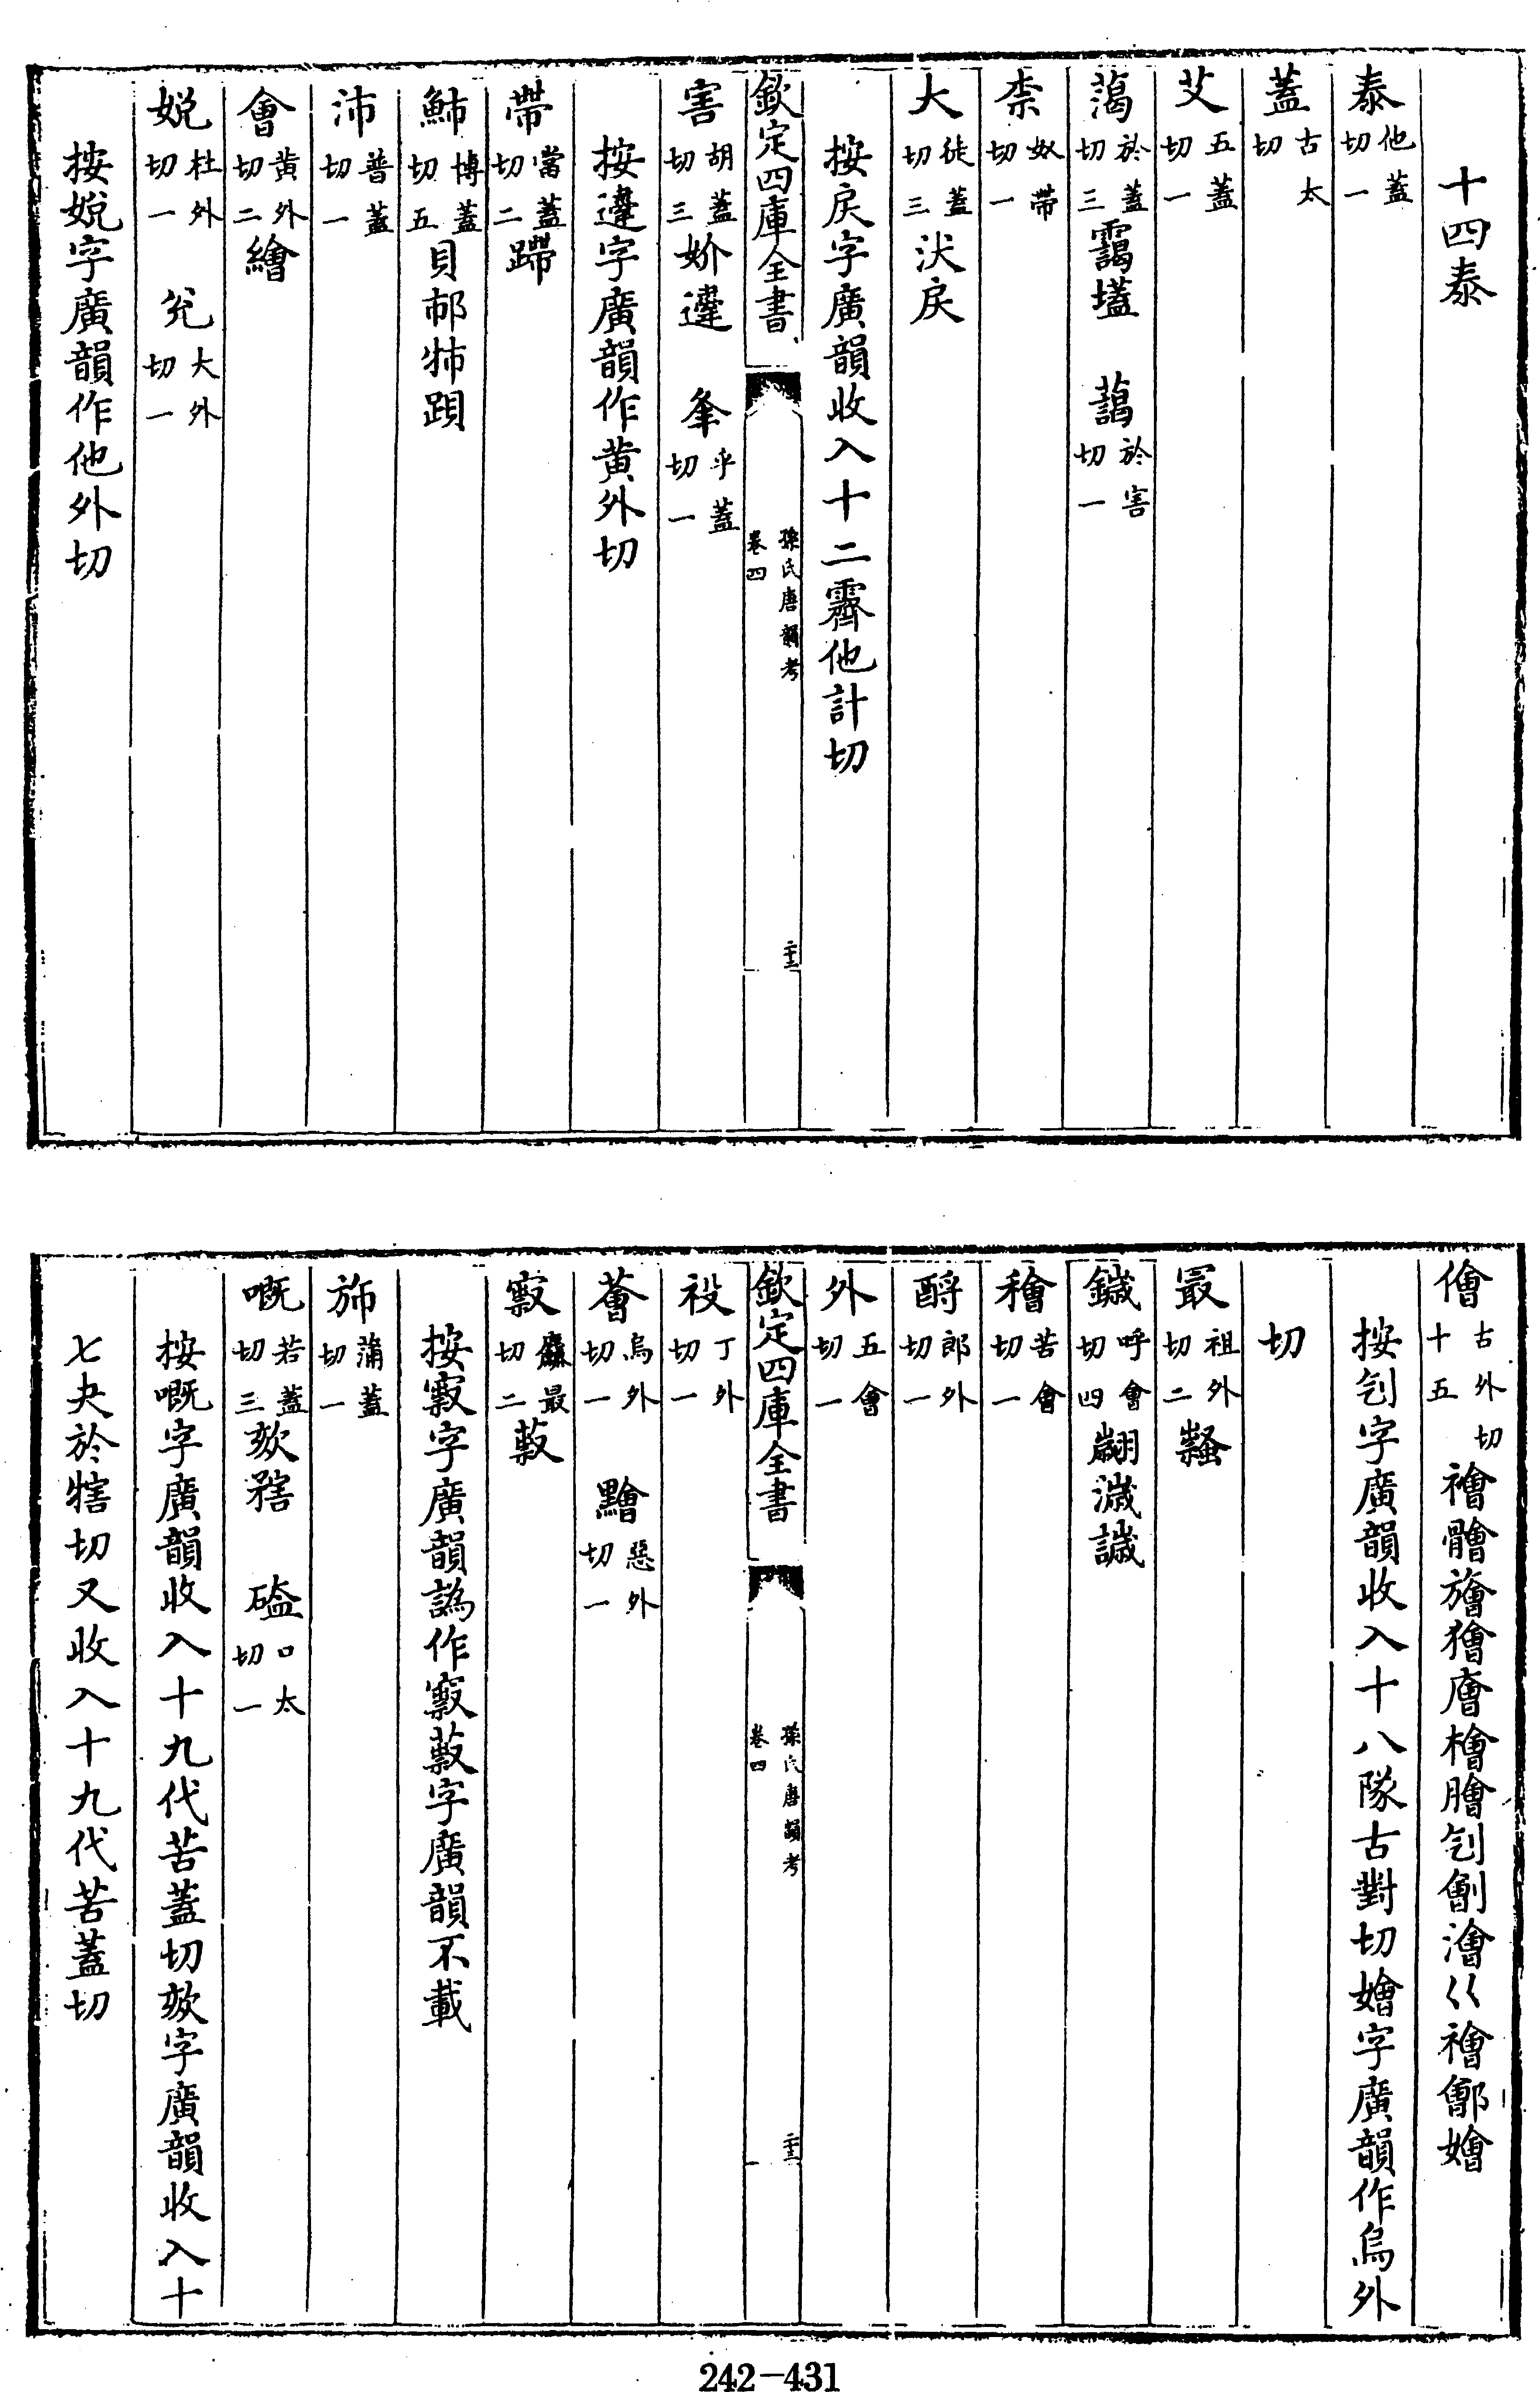 十四泰
泰他蓋切一
蓋古太切
艾五蓋切一
藹於蓋切三靄壒 藹於害切一
柰奴帶切一
大徒蓋切三汏戾
按戾字廣韻收入十二霽他計切
欽定四庫全書 孫氏唐韻考 卷四 二十三
害胡蓋切三妎𨖷 夆乎蓋切一
按𨖷字廣韻作黄外切
帶當蓋切二蹛
䰽博蓋切五貝邶㸬跟
沛普蓋切一
會黄外切二繪
娧杜外切一 兊大外切一
按娧字廣韻作他外切
儈古外切十五 襘髇旝獪廥檜膾刏劊澮巜禬鄶嬒
按刏字廣韻收入十八隊古對切嬒字廣韻作烏外
切
最祖外切二𥽿
鐬呼會切四翽濊䜋
穭苦會切一
酹郎外切一
外五會切一
欽定四庫全書 孫氏唐韻考 卷四 二十三
祋丁外切一
薈烏外切一 黵惡外切一
㝮麤最切二蔌
按㝮字廣韻譌作㝮蔌字廣韻不載
斾蒲蓋切一
嘅若蓋切三欬㓤 磕口太切一
按嘅字廣韻收入十九代苦蓋切欬字廣韻收入十
七夬於犗切又收入十九代苦蓋切
242-431